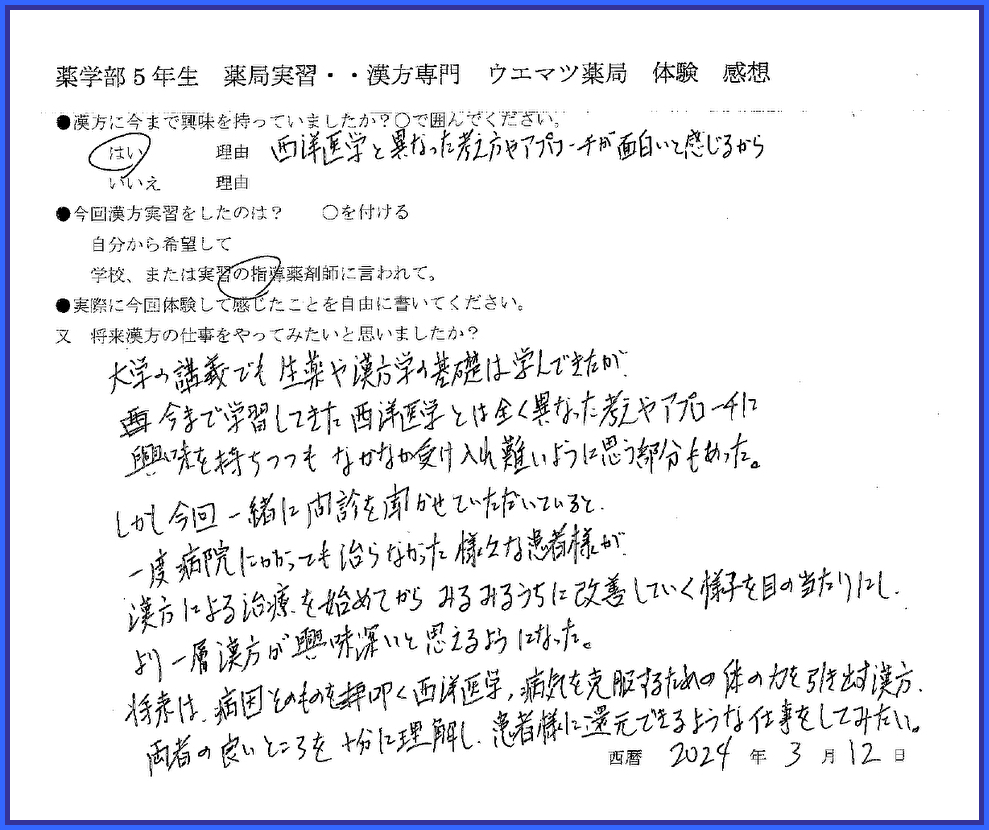 薬学部5年生　薬局実習・・漢方専門　ウエマツ薬局　体験　感想
●漢方に今まで興味を持っていましたか?○で囲んでください。
はい　理由　西洋医学と異なった考え方やアプローチが面白いと感じるから
いいえ　理由
●今回漢方実習をしたのは?　○を付ける
自分から希望して
学校、または実習の指導薬剤師に言われて。
●実際に今回体験して感じたことを自由に書いてください。
又　将来漢方の仕事をやってみたいと思いましたか?
大学の講義でも生薬や漢方学の基礎は学んできたが、
今まで学習してきた西洋医学とは全く異なった考えやアプローチに
興味を持ちつつもなかなか受け入れ難いように思う部分もあった。
しかし今回一緒に問診を聞かせていただいていると、
一度病院にかかっても治らなかった様々な患者様が、
漢方による治療を始めてからみるみるうちに改善していく様子を目の当たりにし、
より一層漢方が興味深いと思えるようになった。
将来は、病因そのものを叩く西洋医学、病気を克服するための体の力を引き出す漢方、
両者の良いところを十分に理解し、患者様に還元できるような仕事をしてみたい。
西暦　2024年3月12日